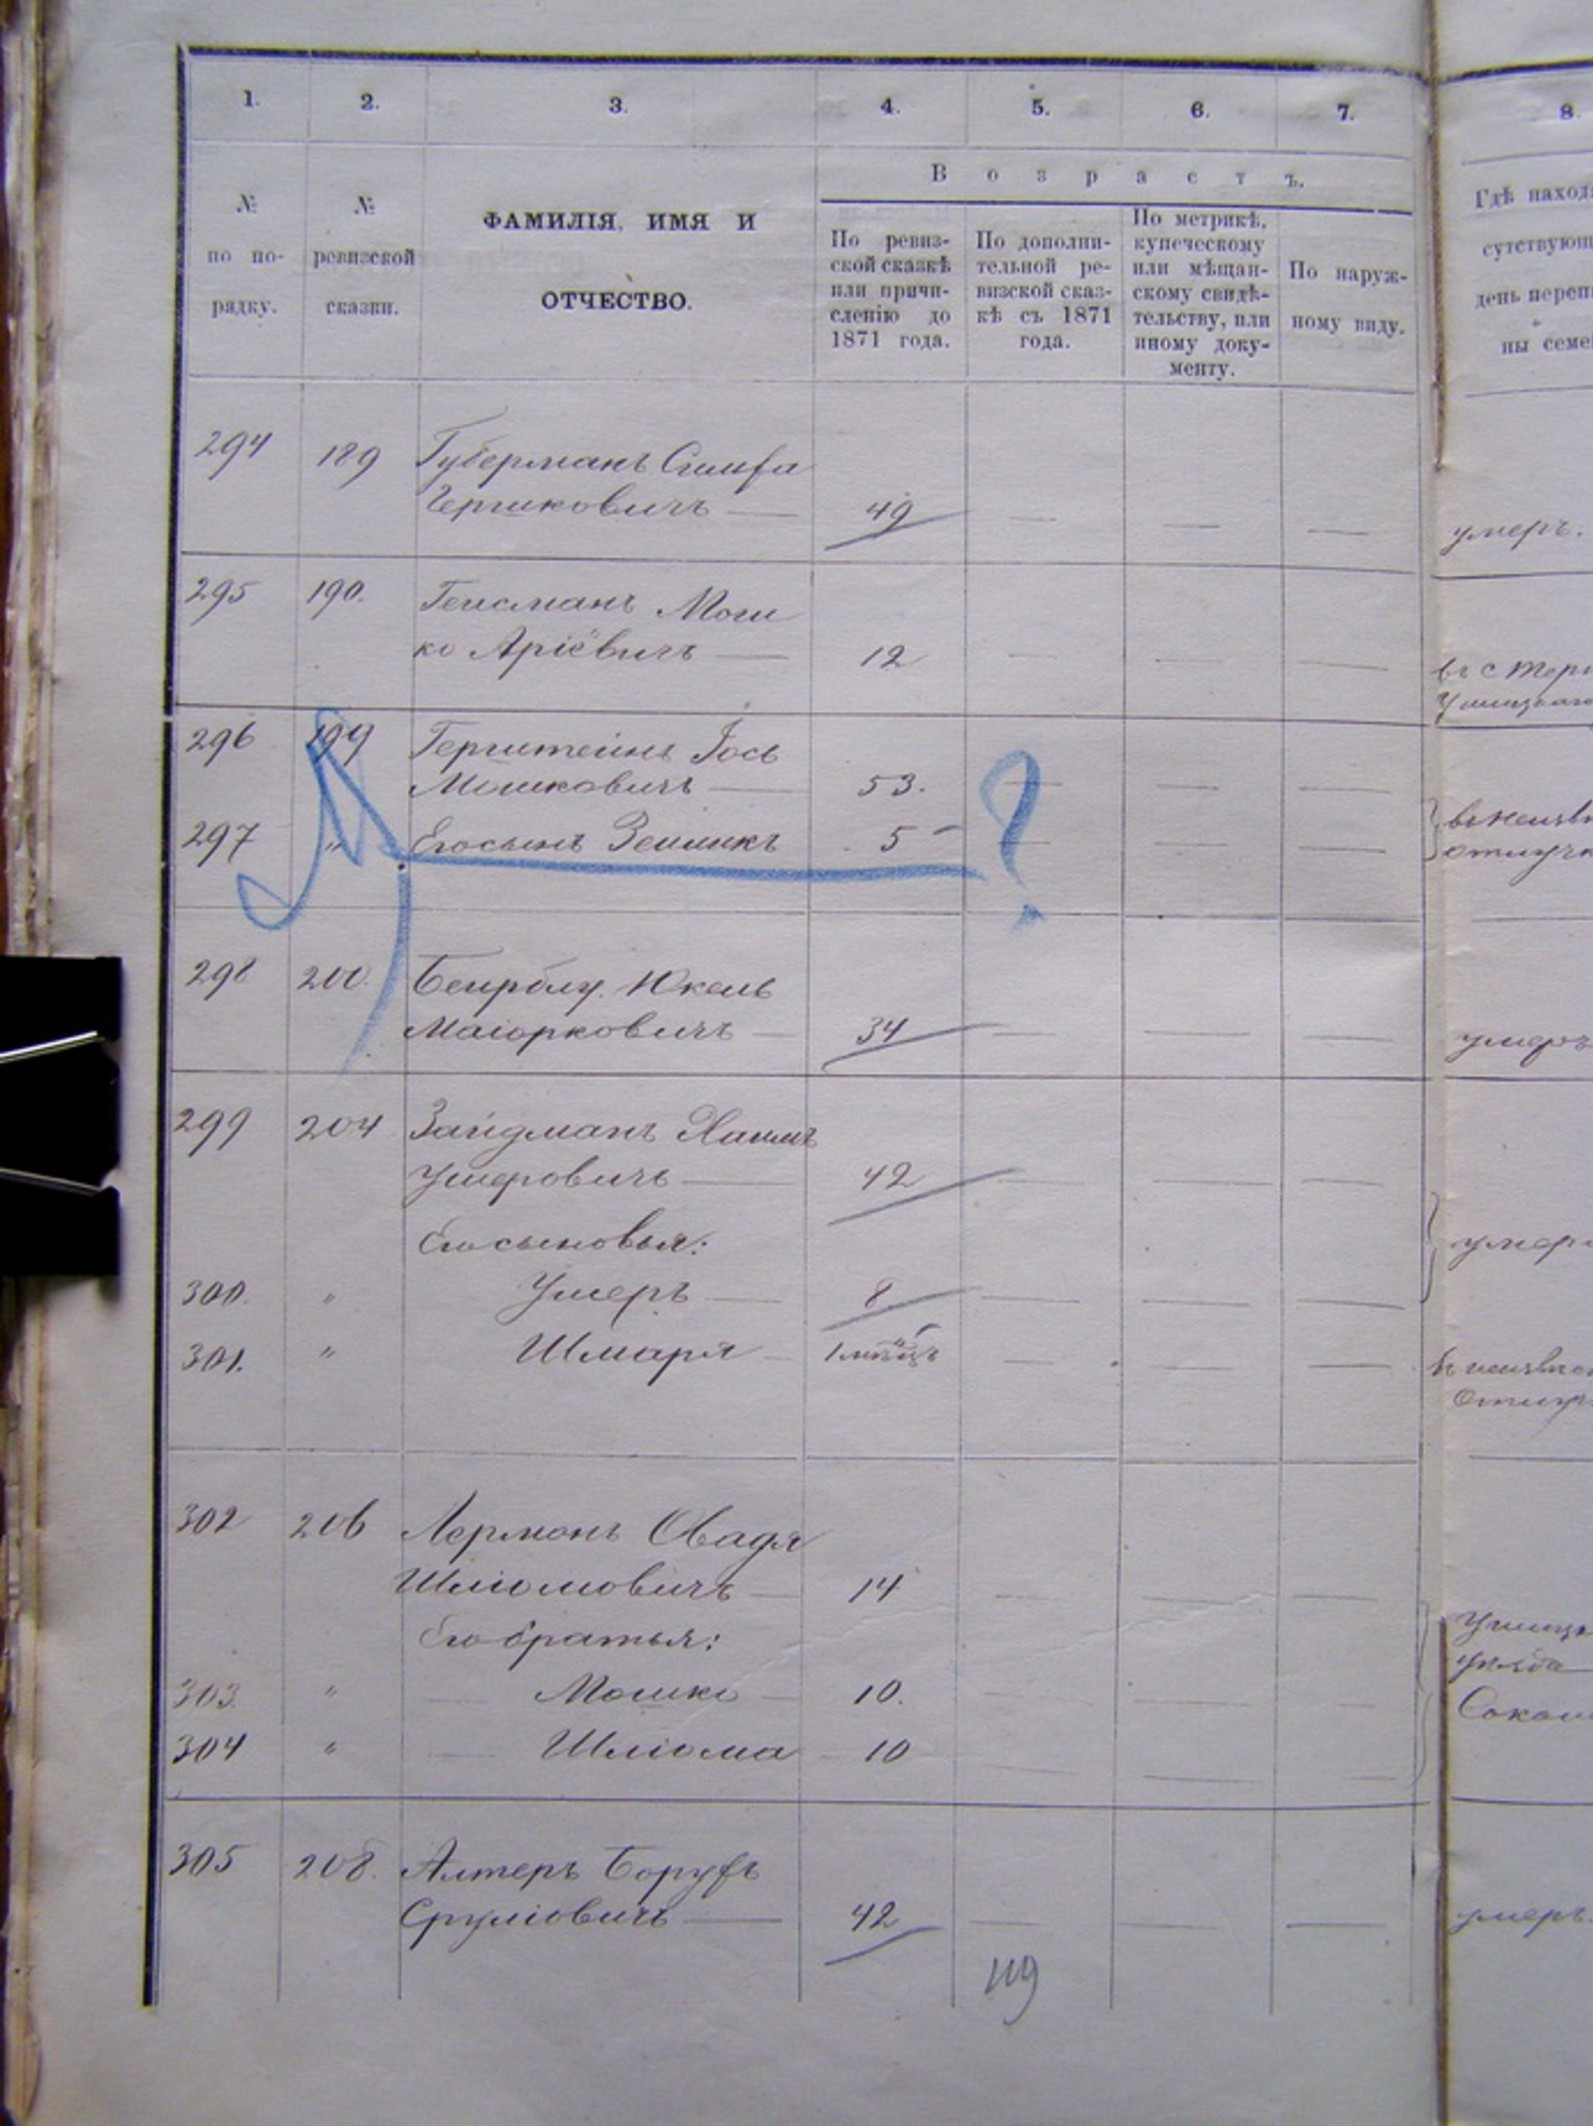 1. 2. 3. 4. 5. 6. 7. 8.
В о з р а с т ъ.
№ по по-рядку.
№ ревизской сказки.
ФАМИЛІЯ, ИМЯ И
ОТЧЕСТВО.
По ревиз-
ской сказкѣ
или причи-
сленію до
1871 года.
По дополни-
тельной ре-
визской сказ-
кѣ съ 1871
года.
По метрикѣ,
купеческому
или мѣщан-
скому свидѣ-
тельству, или
иному доку-
менту.
По наруж-
ному виду.
Гдѣ наход
сутствующ
день переп
ны семе
294 189 Губерманъ Симха
Гершковичъ — 49 — — — умеръ.
295 190. Гейсманъ Мош
ко Аріёвичъ — 12 — — —
296 199 Герштейнъ Іось
Мошковичъ — 53. — — —
297 " Егосынъ Зейликъ 5 — — —
?
298 200. Беирблу. Юкель
Маіорковичъ — 34 — — — умеръ
299 204 Зайдманъ Хаимъ
Ушеровичъ — 42 — — —
Его сыновья: умер
300. " Ушеръ — 8 — — —
301. " Шмаря — 1 мѣсцъ — — —
302 206 Лерманъ Овадя
Шліомовичъ — 14 — — —
Его братья:
303. " — Мошко — 10. — — —
304 " — Шліома 10 — — —
305 208. Алтеръ Борухъ
Сруліовичъ — 42 — — — умеръ.
119